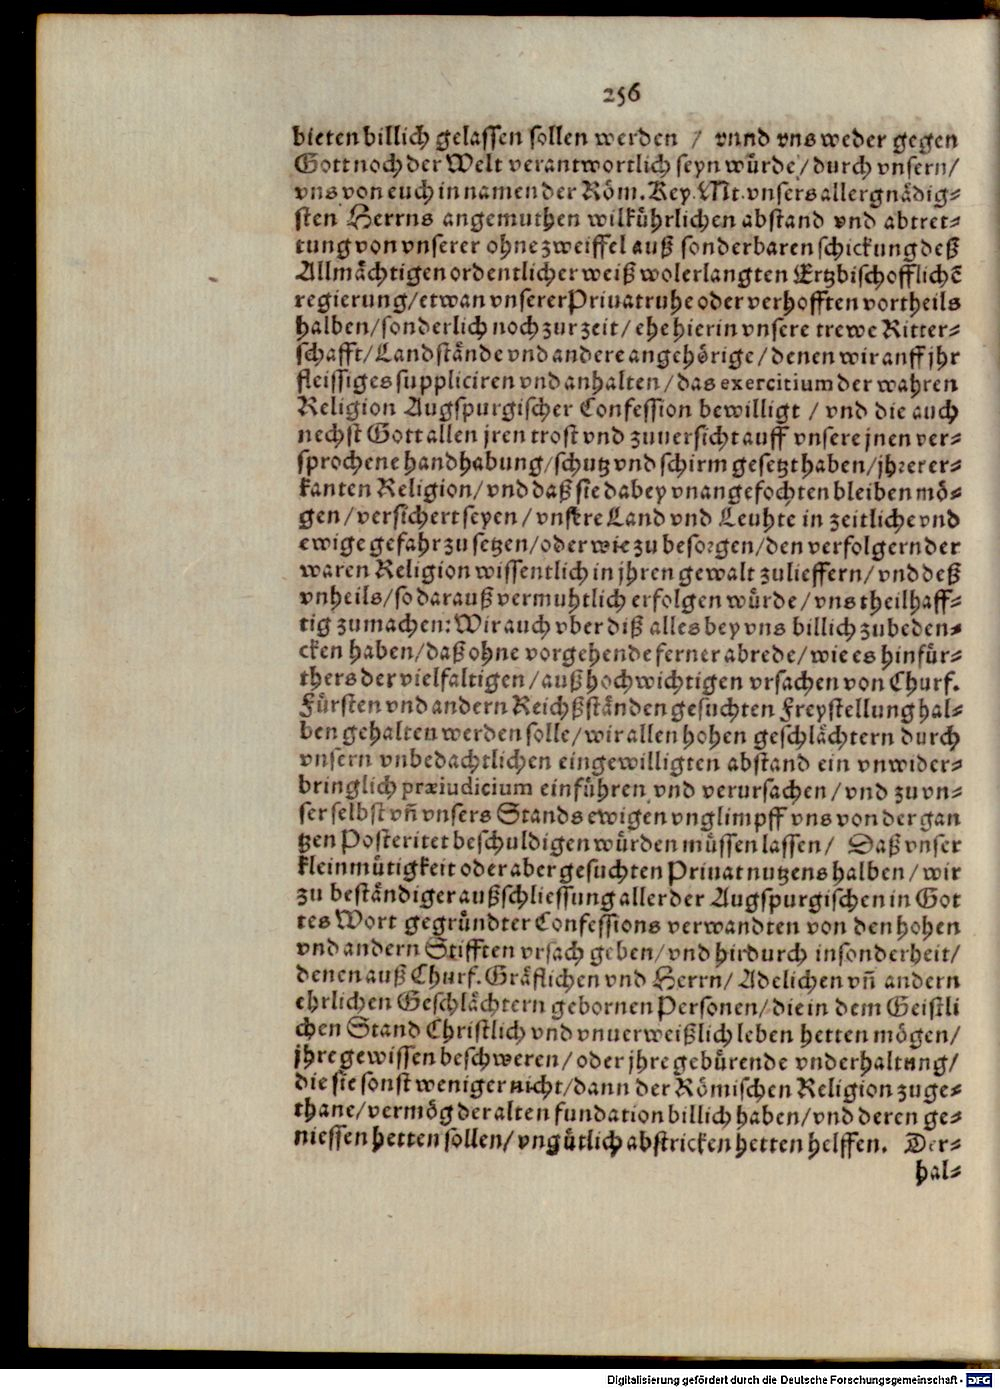 256
bieten billich gelassen sollen werden / vnnd vns weder gegen
Gott noch der Welt verantwortlich seyn würde / durch vnsern /
vns von euch in namen der Röm. Key. Mt. vnsers allergnädig-
sten Herrns angemuthen wilkührlichen abstand vnd abtret-
tung von vnserer ohne zweiffel auß sonderbaren schickung deß
Allmächtigen ordentlicher weiß wolerlangten Ertzbischofflichẽ
regierung / etwan vnserer Priuat ruhe oder verhofften vortheils
halben / sonderlich noch zur zeit / ehe hierin vnsere trewe Ritter-
schafft / Landstände vnd andere angehörige / denen wir anff jhr
fleissiges suppliciren vnd anhalten / das exercitium der wahren
Religion Augspurgischer Confession bewilligt / vnd die auch
nechst Gott allen jren trost vnd zuuersicht auff vnsere jnen ver-
sprochene handhabung / schutz vnd schirm gesetzt haben / jhrer er-
kanten Religion / vnd daß sie dabey vnangefochten bleiben mö-
gen / versichert seyen / vnsere Land vnd Leuhte in zeitliche vnd
ewige gefahr zu setzen / oder wie zu besorgen / den verfolgern der
waren Religion wissentlich in jhren gewalt zulieffern / vnd deß
vnheils / so darauß vermuhtlich erfolgen würde / vns theilhaff-
tig zumachen: Wir auch vber diß alles bey vns billich zubeden-
cken haben / daß ohne vorgehende ferner abrede / wie es hinfür-
thers der vielfaltigen / auß hochwichtigen vrsachen von Churf.
Fürsten vnd andern Reichßständen gesuchten Freystellung hal-
ben gehalten werden solle / wir allen hohen geschlächtern durch
vnsern vnbedachtlichen eingewilligten abstand ein vnwider-
bringlich præiudicium einführen vnd verursachen / vnd zu vn-
ser selbst vñ vnsers Stands ewigen vnglimpff vns von der gan
tzen Posteritet beschuldigen würden müssen lassen / Daß vnser
kleinmütigkeit oder aber gesuchten Priuat nutzens halben / wir
zu beständiger außschliessung aller der Augspurgischen in Got
tes Wort gegründter Confessions verwandten von den hohen
vnd andern Stifften vrsach geben / vnd hirdurch insonderheit /
denen auß Churf. Gräflichen vnd Herrn / Adelichen vñ andern
ehrlichen Geschlächtern gebornen Personen / die in dem Geistli
chen Stand Christlich vnd vnuerweißlich leben hetten mögen /
jhre gewissen beschweren / oder jhre gebürende vnderhaltung /
die sie sonst weniger nicht / dann der Römischen Religion zuge-
thane / vermög der alten fundation billich haben / vnd deren ge-
niessen hetten sollen / vngütlich abstricken hetten helffen. Der-
hal-
Digitalisierung gefördert durch die Deutsche Forschungsgemeinschaft - DFG